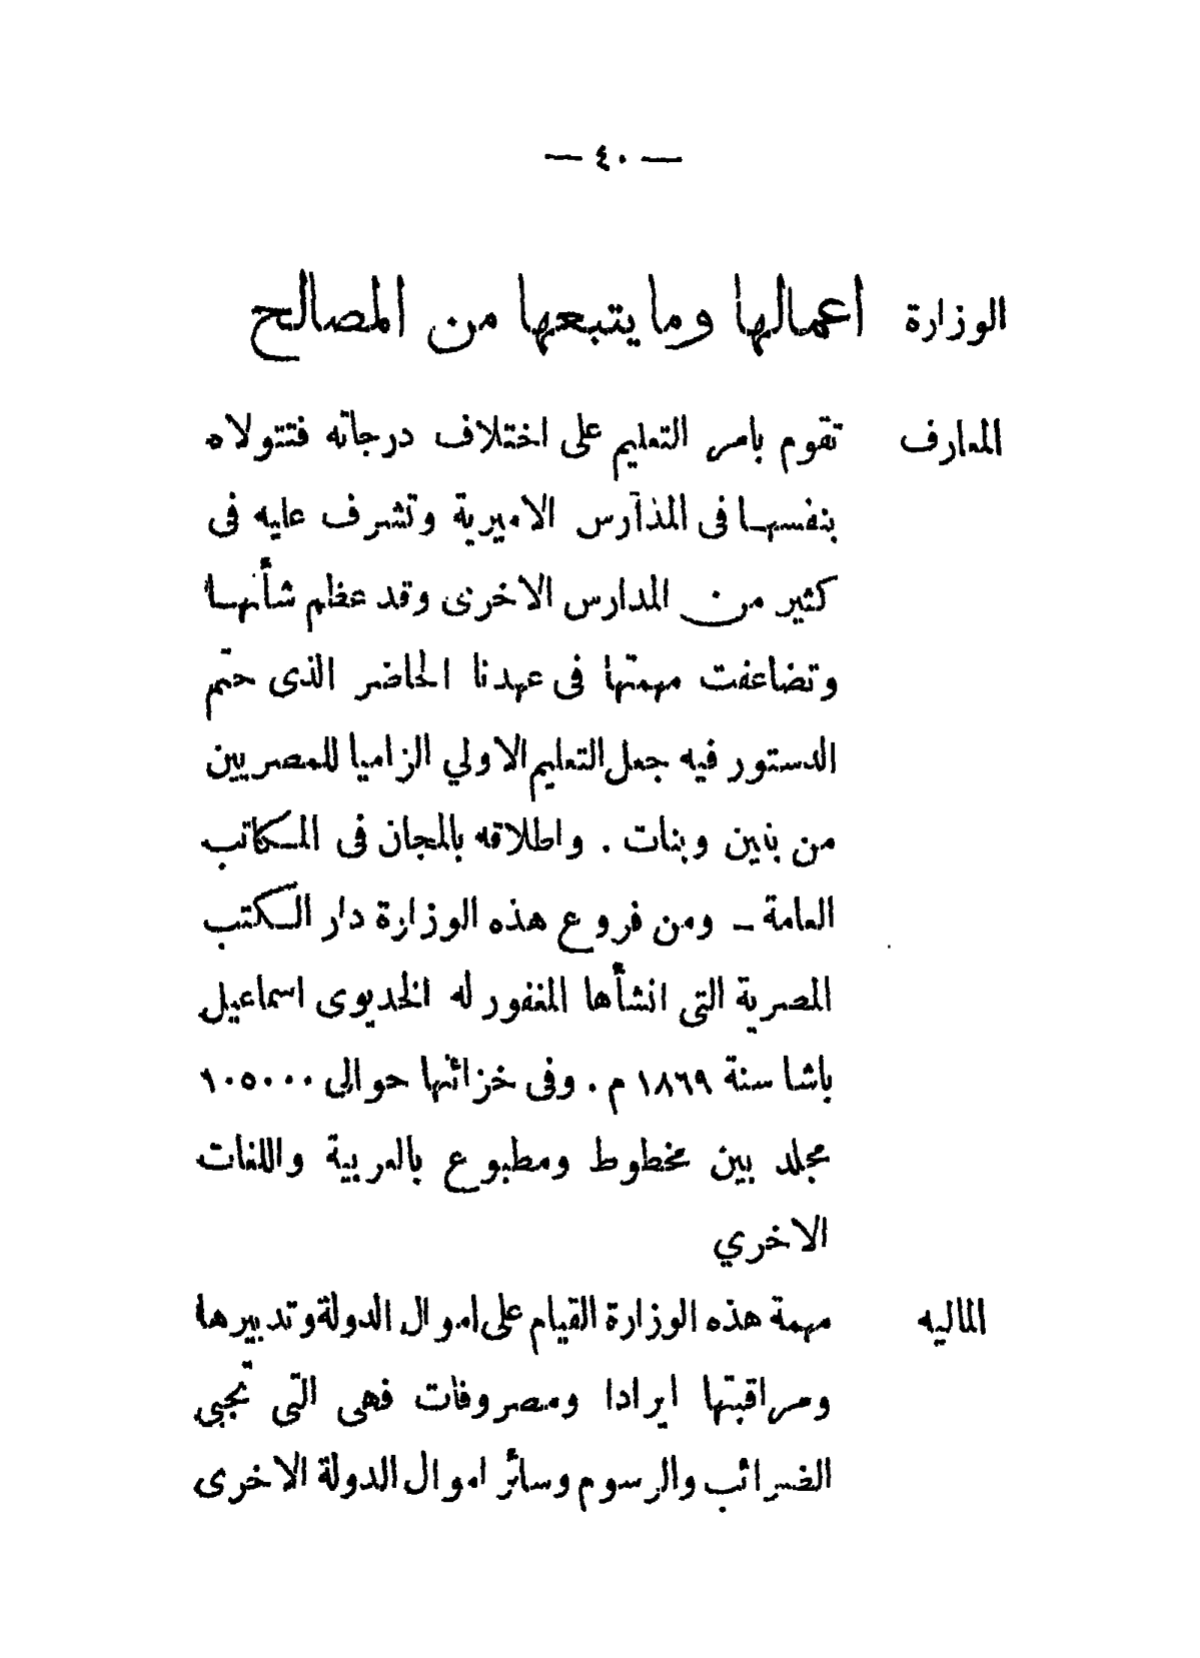 — ٤٠ —
الوزارة اعمالها وما يتبعها من المصالح
المعارف تقوم بامر التعليم على اختلاف درجاته فتتولاه
بنفسها فى المدارس الاميرية وتشرف عليه فى
كثير من المدارس الاخرى وقد عظم شأنها
وتضاعفت مهمتها فى عهدنا الحاضر الذى حتم
الدستور فيه جعل التعليم الاولي الزاميا للمصريين
من بنين وبنات . واطلاقه بالمجان فى المكاتب
العامة – ومن فروع هذه الوزارة دار الكتب
المصرية التى انشأها المغفور له الخديوى اسماعيل
باشا سنة ١٨٦٩ م . وفى خزائنها حوالى ١٠٥٠٠٠
مجلد بين مخطوط ومطبوع بالعربية واللغات
الاخري
الماليه مهمة هذه الوزارة القيام على اموال الدولة وتدبيرها
ومراقبتها ايرادا ومصروفات فهى التى تجبى
الضرائب والرسوم وسائر اموال الدولة الاخرى